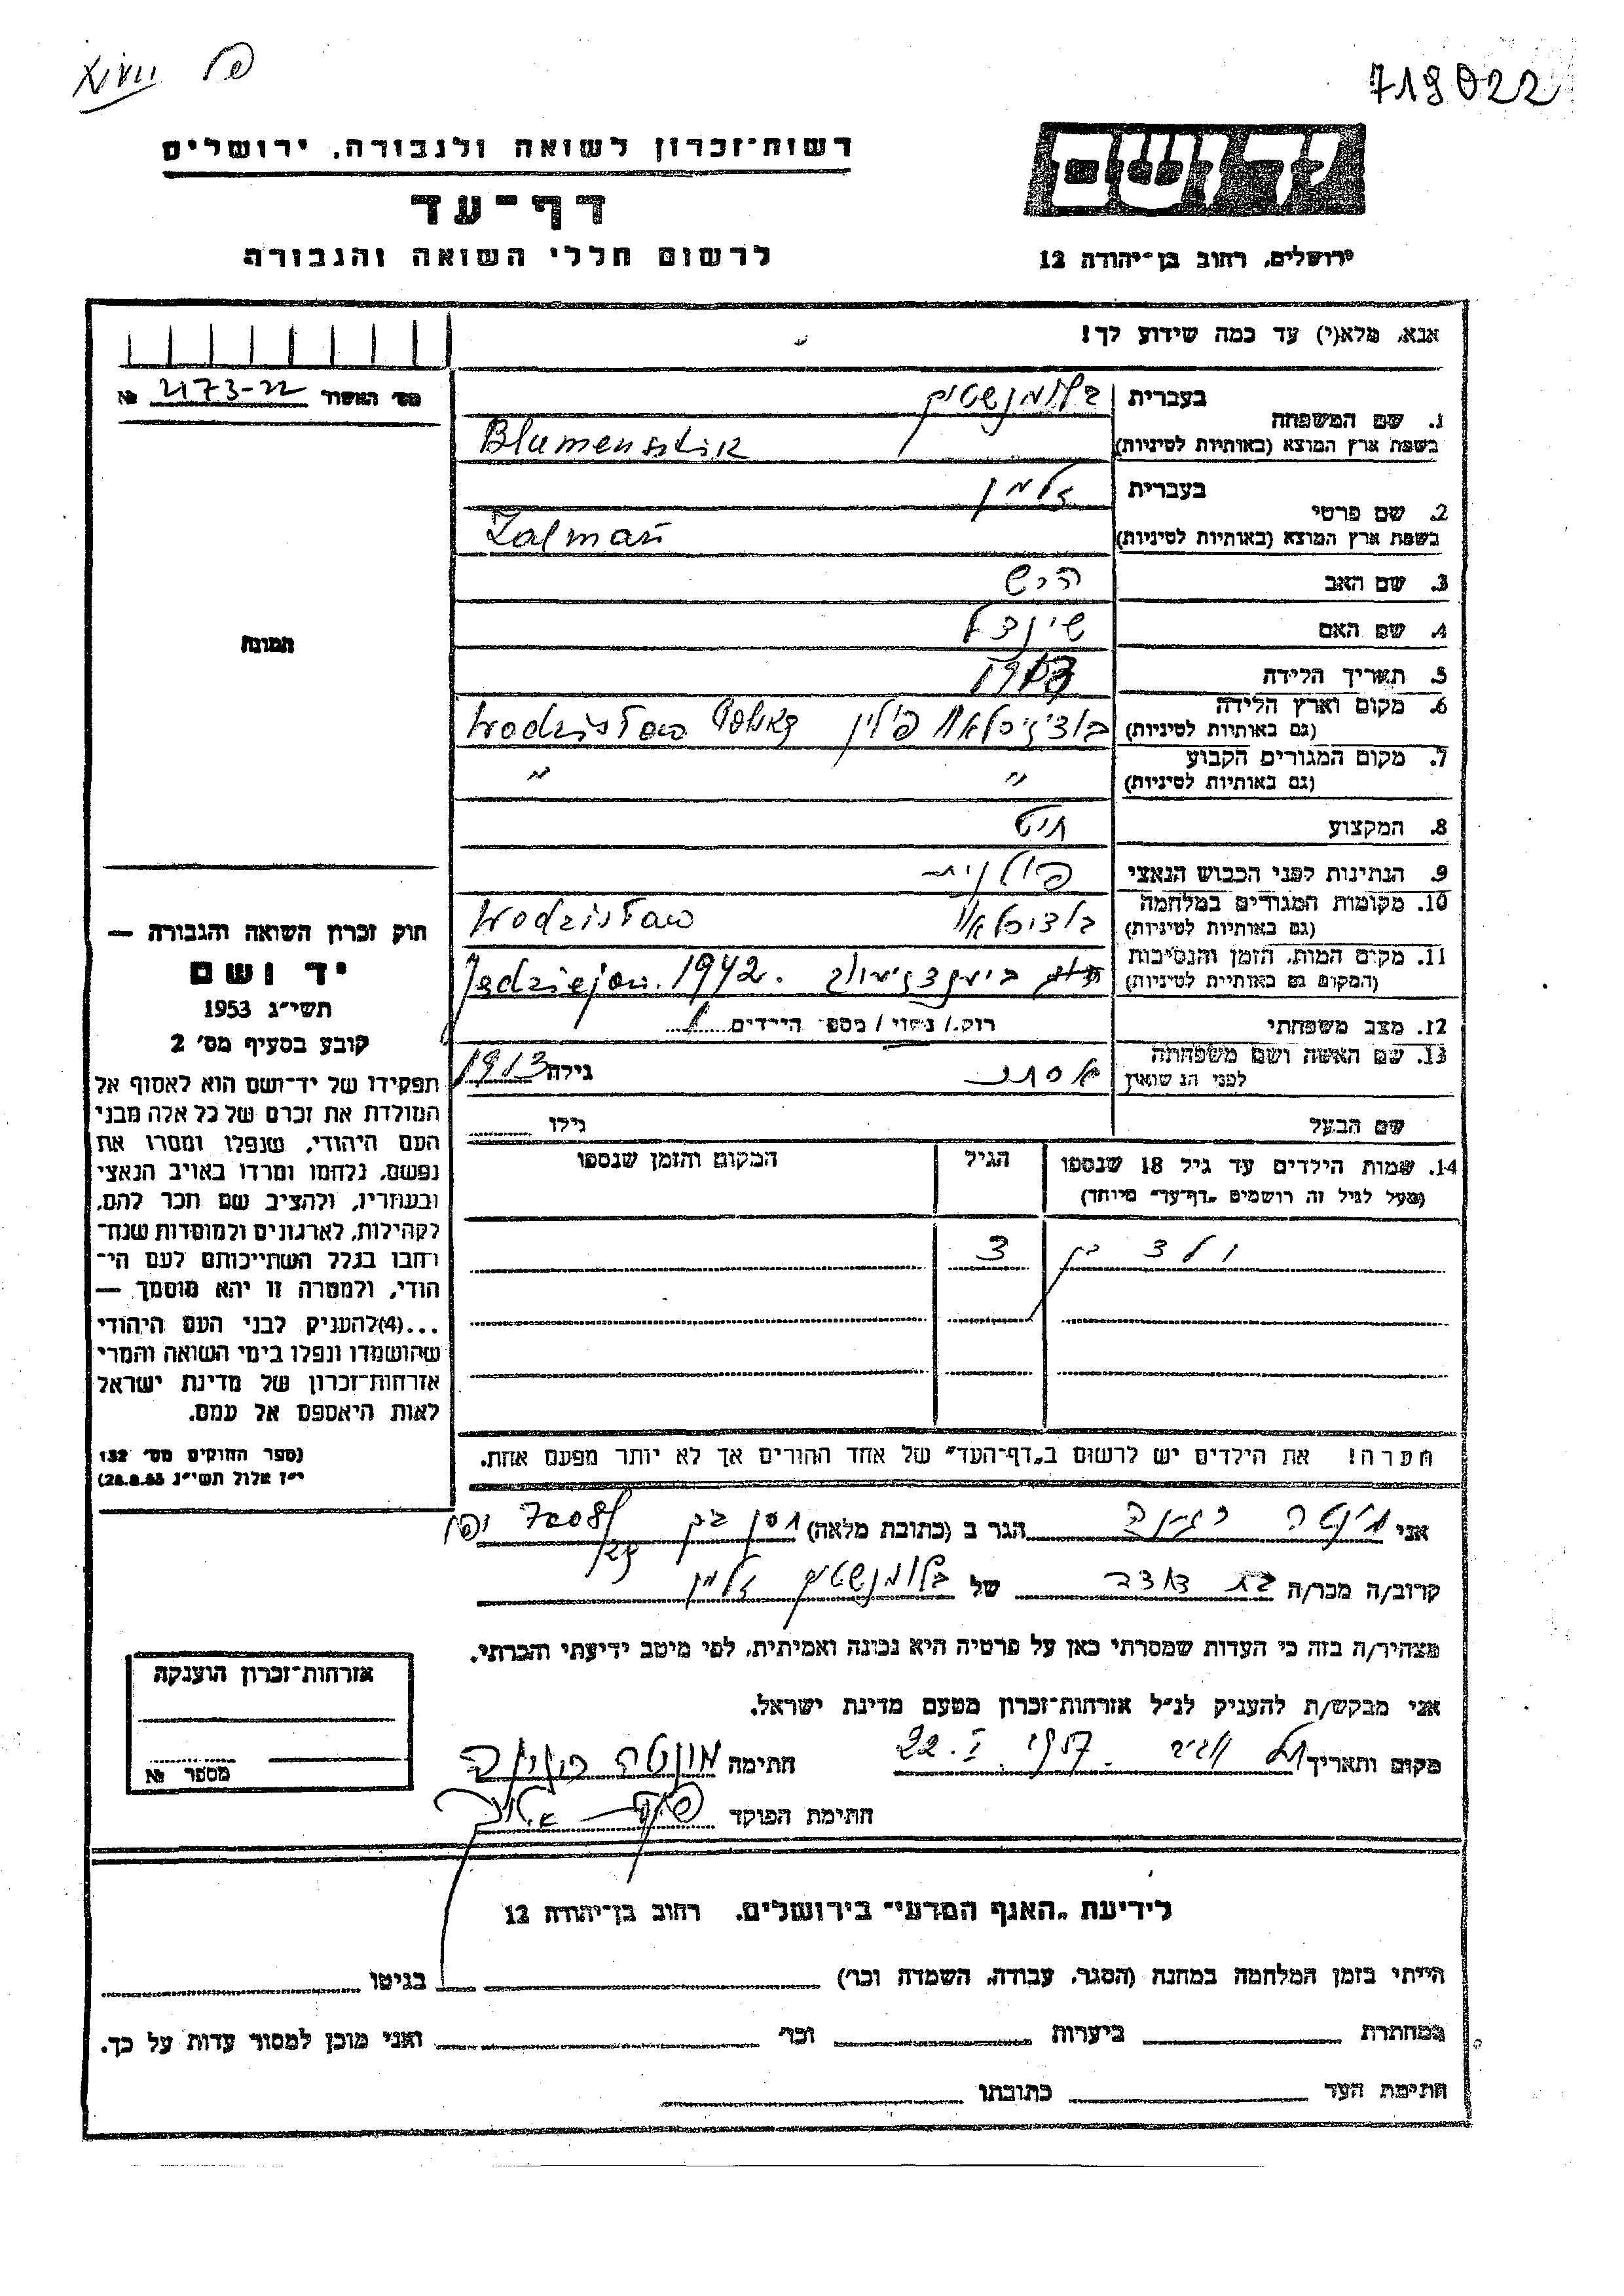 719022
רשות־זכרון לשואה ולגבורה, ירושלים
דף־עד
לרשום חללי השואה והגבורה
יד ושם
ירושלים, רחוב בן־יהודה 12
אנא, מלא(י) עד כמה שידוע לך!
מס' האשור № 2173-22
תמונה
1. שם המשפחה
בעברית בלומנשטיק
בשפת ארץ המוצא (באותיות לטיניות) Blumensztik
2. שם פרטי
בעברית זלמן
בשפת ארץ המוצא (באותיות לטיניות) Zalman
3. שם האב הרש
4. שם האם שינדל
5. תאריך הלידה
6. מקום וארץ הלידה (גם באותיות לטיניות) פולין Wodzisław
7. מקום המגורים הקבוע (גם באותיות לטיניות) " "
8. המקצוע חיט
9. הנתינות לפני הכבוש הנאצי פולנית
10. מקומות המגורים במלחמה (גם באותיות לטיניות) Wodzisław
11. מקום המות, הזמן והנסיבות (המקום גם באותיות לטיניות) Jędziejow. 1942.
12. מצב משפחתי רוק/ נשוי/ מספר הילדים 1
13. שם האשה ושם משפחתה לפני הנשואין אסתר גילה 1913
שם הבעל גילו
14. שמות הילדים עד גיל 18 שנספו הגיל המקום והזמן שנספו
(מעל לגיל זה רושמים „דף־עד" מיוחד)
ילד בן 3
הערה! את הילדים יש לרשום ב„דף־העד" של אחד ההורים אך לא יותר מפעם אחת.
חוק זכרון השואה והגבורה —
יד ושם
תשי״ג 1953
קובע בסעיף מס' 2
תפקידו של יד־ושם הוא לאסוף אל
המולדת את זכרם של כל אלה מבני
העם היהודי, שנפלו ומסרו את
נפשם, נלחמו ומרדו באויב הנאצי
ובעוזריו, ולהציב שם וזכר להם,
לקהילות, לארגונים ולמוסדות שנח־
רבו בגלל השתייכותם לעם הי־
הודי, ולמטרה זו יהא מוסמך —
...(4)להעניק לבני העם היהודי
שהושמדו ונפלו בימי השואה והמרי
אזרחות־זכרון של מדינת ישראל
לאות היאספם אל עמם.
(ספר החוקים מס' 132
י״ז אלול תשי״ג 28.8.53)
אני מונטה רגינה הגר ב (כתובת מלאה) יפו
קרוב/ה מכר/ה בת דודה של בלומנשטיק זלמן
מצהיר/ה בזה כי העדות שמסרתי כאן על פרטיה היא נכונה ואמיתית, לפי מיטב ידיעתי והכרתי.
אני מבקש/ת להעניק לנ״ל אזרחות־זכרון מטעם מדינת ישראל.
מקום ותאריך תל אביב 22. I. 1957 חתימה מונטה רגינה
חתימת הפוקד
אזרחות־זכרון הוענקה
מספר №
לידיעת „האגף המדעי" בירושלים, רחוב בן־יהודה 12
הייתי בזמן המלחמה במחנה (הסגר, עבודה, השמדה וכו') בגיטו
במחתרת ביערות וכו' ואני מוכן למסור עדות על כך.
חתימת העד כתובתו